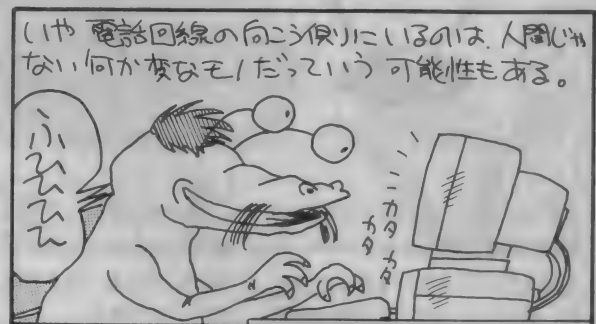 いや 電話回線の向こう側りにいるのは、人間じゃ
ない何か変なモノだっていう 可能性もある。
ふひひひひ
カタ
カタ
カタ